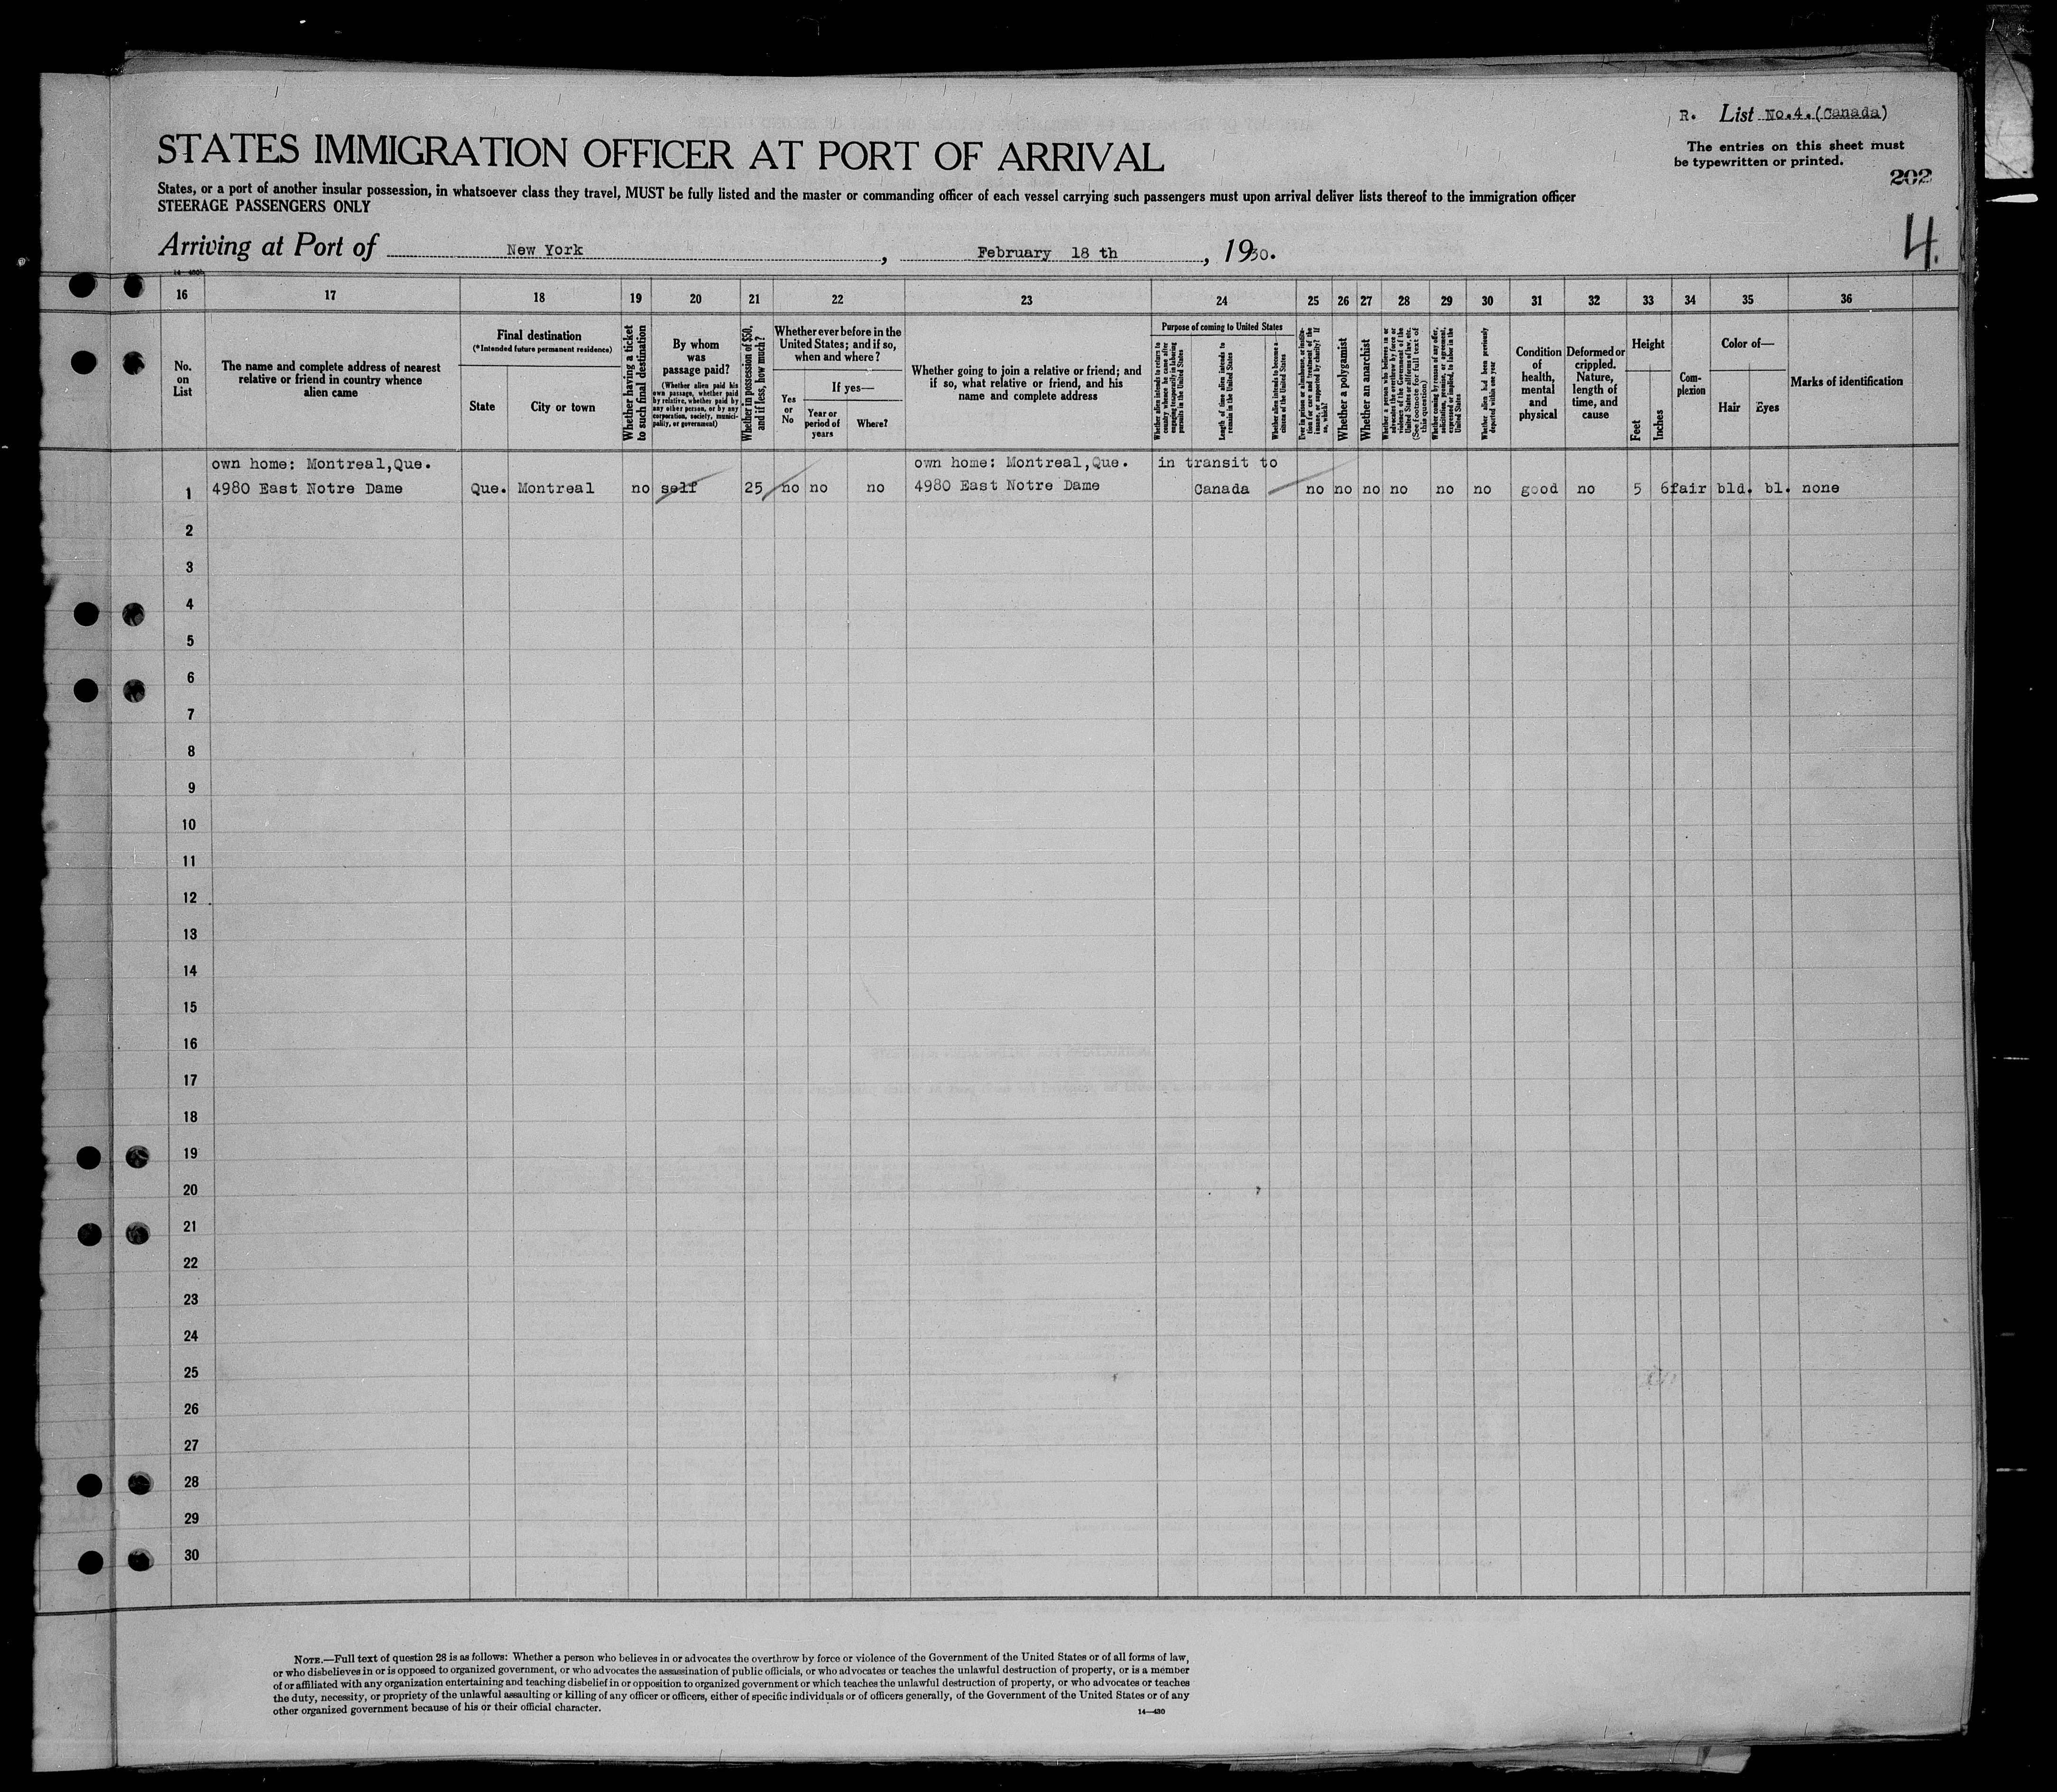 R. List No.4.(Canada)
The entries on this sheet must
be typewritten or printed.
202
4.
STATES IMMIGRATION OFFICER AT PORT OF ARRIVAL
States, or a port of another insular possession, in whatsoever class they travel, MUST be fully listed and the master or commanding officer of each vessel carrying such passengers must upon arrival deliver lists thereof to the immigration officer
STEERAGE PASSENGERS ONLY
Arriving at Port of New York, February 18 th, 1930.
16 17 18 19 20 21 22 23 24 25 26 27 28 29 30 31 32 33 34 35 36
No.
on
List
The name and complete address of nearest
relative or friend in country whence
alien came
Final destination
(*Intended future permanent residence)
State
City or town
Whether having a ticket
to such final destination
By whom
was
passage paid?
(Whether alien paid his
own passage, whether paid
by relative, whether paid by
any other person, or by any
corporation, society, munici-
pality, or government)
Whether in possession of $50,
and if less, how much?
Whether ever before in the
United States; and if so,
when and where?
Yes
or
No
If yes—
Year or
period of
years
Where?
Whether going to join a relative or friend; and
if so, what relative or friend, and his
name and complete address
Purpose of coming to United States
Whether alien intends to return to
country whence he came after
engaging temporarily in laboring
pursuits in the United States
Length of time alien intends to
remain in the United States
Whether alien intends to become a
citizen of the United States
Ever in prison or almshouse, or institu-
tion for care and treatment of the
insane, or supported by charity? If
so, which?
Whether a polygamist
Whether an anarchist
Whether a person who believes in or
advocates the overthrow by force or
violence of the Government of the
United States or all forms of law, etc.
(See footnote for full text of
this question)
Whether coming by reason of any offer,
solicitation, promise, or agreement,
expressed or implied, to labor in the
United States
Whether alien had been previously
deported within one year
Condition
of
health,
mental
and
physical
Deformed or
crippled.
Nature,
length of
time, and
cause
Height
Feet
Inches
Com-
plexion
Color of—
Hair
Eyes
Marks of identification
own home: Montreal,Que. own home: Montreal,Que. in transit to
1 4980 East Notre Dame Que. Montreal no self 25 no no no 4980 East Notre Dame Canada no no no no no no good no 5 6 fair bld. bl. none
2
3
4
5
6
7
8
9
10
11
12
13
14
15
16
17
18
19
20
21
22
23
24
25
26
27
28
29
30
NOTE.—Full text of question 28 is as follows: Whether a person who believes in or advocates the overthrow by force or violence of the Government of the United States or of all forms of law,
or who disbelieves in or is opposed to organized government, or who advocates the assassination of public officials, or who advocates or teaches the unlawful destruction of property, or is a member
of or affiliated with any organization entertaining and teaching disbelief in or opposition to organized government or which teaches the unlawful destruction of property, or who advocates or teaches
the duty, necessity, or propriety of the unlawful assaulting or killing of any officer or officers, either of specific individuals or of officers generally, of the Government of the United States or of any
other organized government because of his or their official character.
14—430